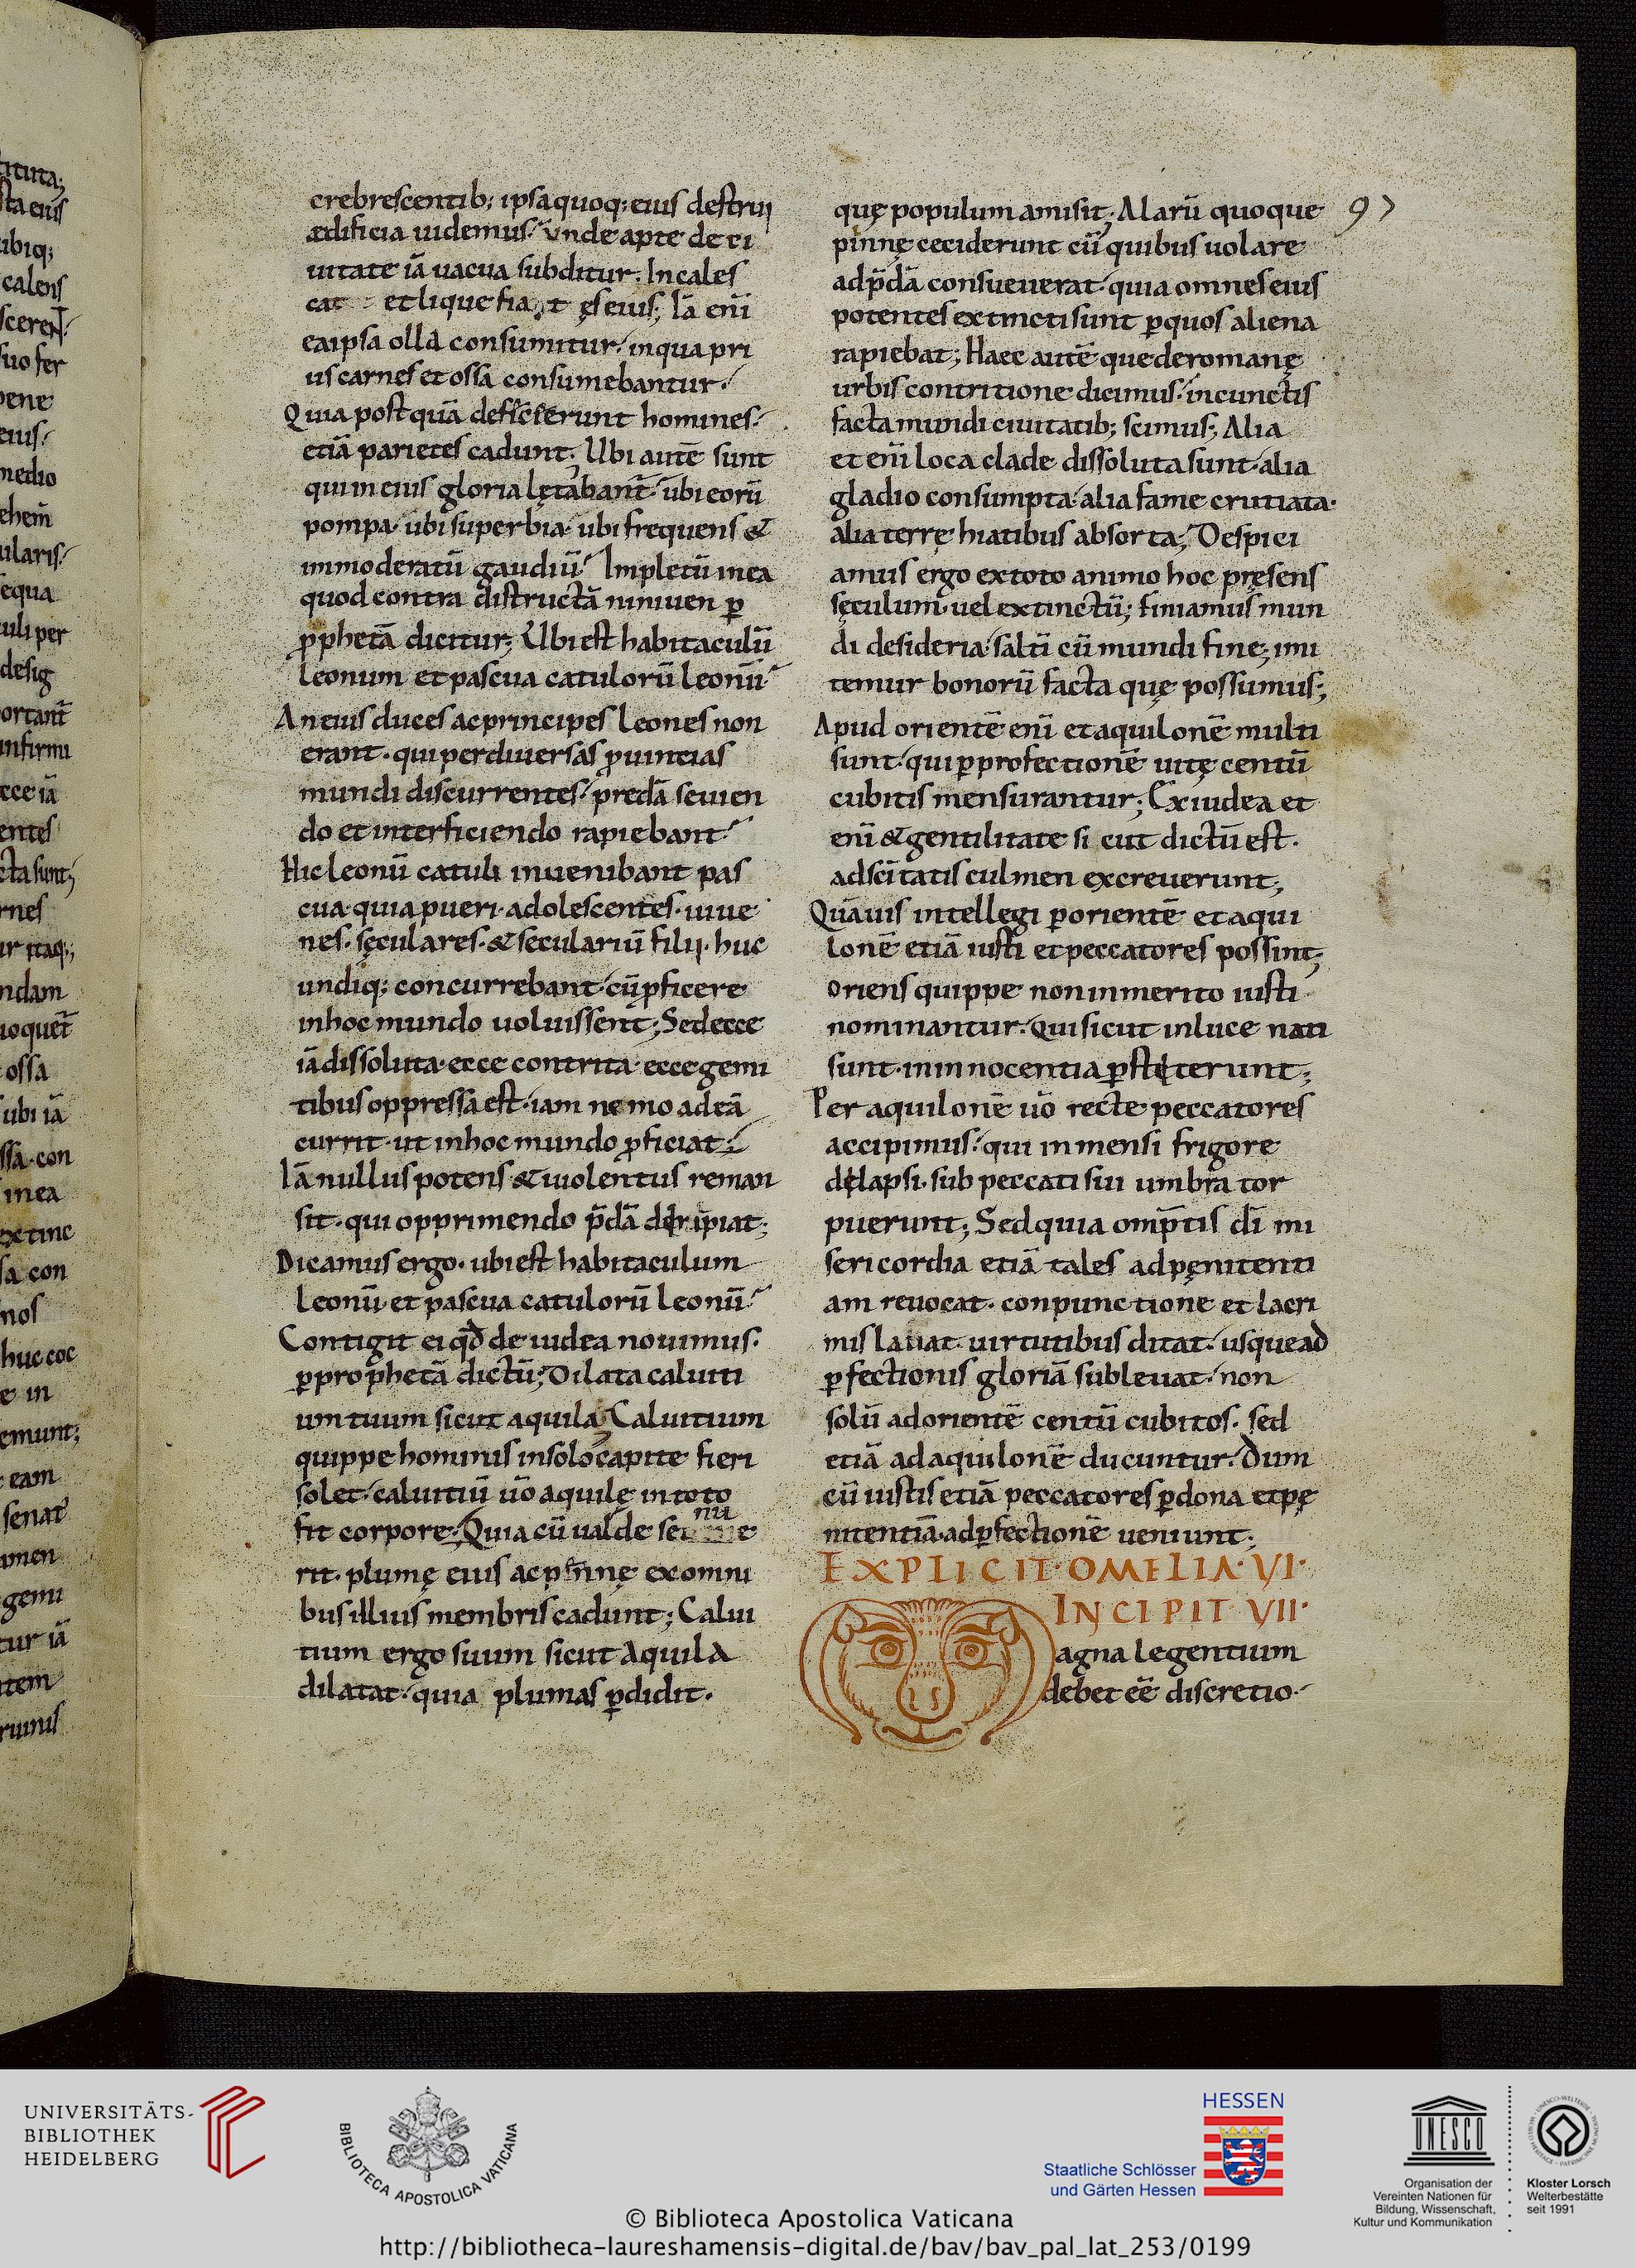 crebrescentib; ipsa quoq; eius destrui
ædificia uidemus. Unde apte de ci
uitate iā uacua subditur. Incales
cat et liquefiat ęs eius; Iā eni̅
ea ipsa olla consumitur. in qua pri
us carnes et ossa consumebantur.
Quia postquā deficierunt homines.
etiā parietes cadunt. Ubi autē sunt
qui in eius gloria lętabant̄. ubi eorū
pompa. ubi superbia. ubi frequens &
inmoderatū gaudiū. Impletū in ea
quod contra districtā niniuen p̲
p̲phetā dicitur; Ubi est habitaculū
leonum et pascua catulorū leonū
An eius duces ac principes leones non
erant. qui per diuersas p̲uincias
mundi discurrentes. predā seuien
do et interficiendo rapiebant
Hic leonū catuli inuenibant pas
cua. quia pueri. adolescentes. iuue
nes. sęculares. & seculariū filii. huc
undiq; concurrebant. cū p̲ficere
in hoc mundo uoluissent; Sed ecce
iā dissoluta. ecce contrita. ecce gemi
tibus oppressa est. iam nemo ad eā
currit. ut in hoc mundo p̲ficiat;
Iā nullus potens & uiolentus reman
sit. qui opprimendo p̄dā deripiat;
Dicamus ergo. ubi est habitaculum
leonū. et pascua catulorū leonū
Contigit ei qđ de iudea nouimus.
p̲ prophetā dictū; Dilata caluiti
um tuum sicut aquila; Caluitium
quippe hominis in solo capite fieri
solet. caluitiū ūo aquilę in toto
fit corpore. Quia cū ualde senu e
rit. plumę eius ac pinnę ex omni
bus illius membris cadunt; Calui
tium ergo suum sicut aquila
dilatat. quia plumas p̲didit.
quę populum amisit; Alarū quoque
pinnę ceciderunt cū quibus uolare
ad p̄dā consueuerat. quia omnes eius
potentes extincti sunt p̲ quos aliena
rapiebat; Haec autē que de romanę
urbis contritione dicimus. in cunctis
facta mundi ciuitatib; scimus; Alia
et eni̅ loca clade dissoluta sunt. alia
gladio consumpta. alia fame cruciata.
alia terrę hiatibus absorta; Despici
amus ergo ex toto animo hoc pręsens
sęculum. uel extinctū; finiamus mun
di desideria. salti̅ cū mundi fine; imi
temur bonorū facta quę possumus;
Apud orientē eni̅ et aquilonē multi
sunt. qui p̲ profectionē uitę centū
cubitis mensurantur; Ex iudea et
eni̅ & gentilitate sicut dictū est.
ad sc̄itatis culmen excreuerunt;
Quāuis intellegi p̲ orientē et aqui
lonē etiā iusti et peccatores possint;
Oriens quippe non inmerito iusti
nominantur. Qui sicut in luce nati
sunt. in innocentia p̲stęterunt;
Per aquilonē ūo recte peccatores
accipimus. qui in mensi frigore
delapsi. sub peccati sui umbra tor
puerunt; Sed quia omp̄tis dī mi
sericordia etiā tales ad pęnitenti
am reuocat. conpunctione et lacri
mis lauat. uirtutibus ditat. usque ad
p̲fectionis gloriā subleuat. non
solū ad orientē centū cubitos. sed
etiā ad aquilonē ducuntur. Dum
cū iustis etiā peccatores p̲ dona et pę
nitentiā. ad p̲fectionē ueniunt;
EXPLICIT. OMELIA. VI.
INCIPIT VII.
Magna legentium
debet ēē discretio.
97
UNIVERSITÄTS-
BIBLIOTHEK
HEIDELBERG
BIBLIOTECA APOSTOLICA VATICANA
HESSEN
Staatliche Schlösser
und Gärten Hessen
UNESCO
Organisation der
Vereinten Nationen für
Bildung, Wissenschaft,
Kultur und Kommunikation
Kloster Lorsch
Welterbestätte
seit 1991
© Biblioteca Apostolica Vaticana
http://bibliotheca-laureshamensis-digital.de/bav/bav_pal_lat_253/0199